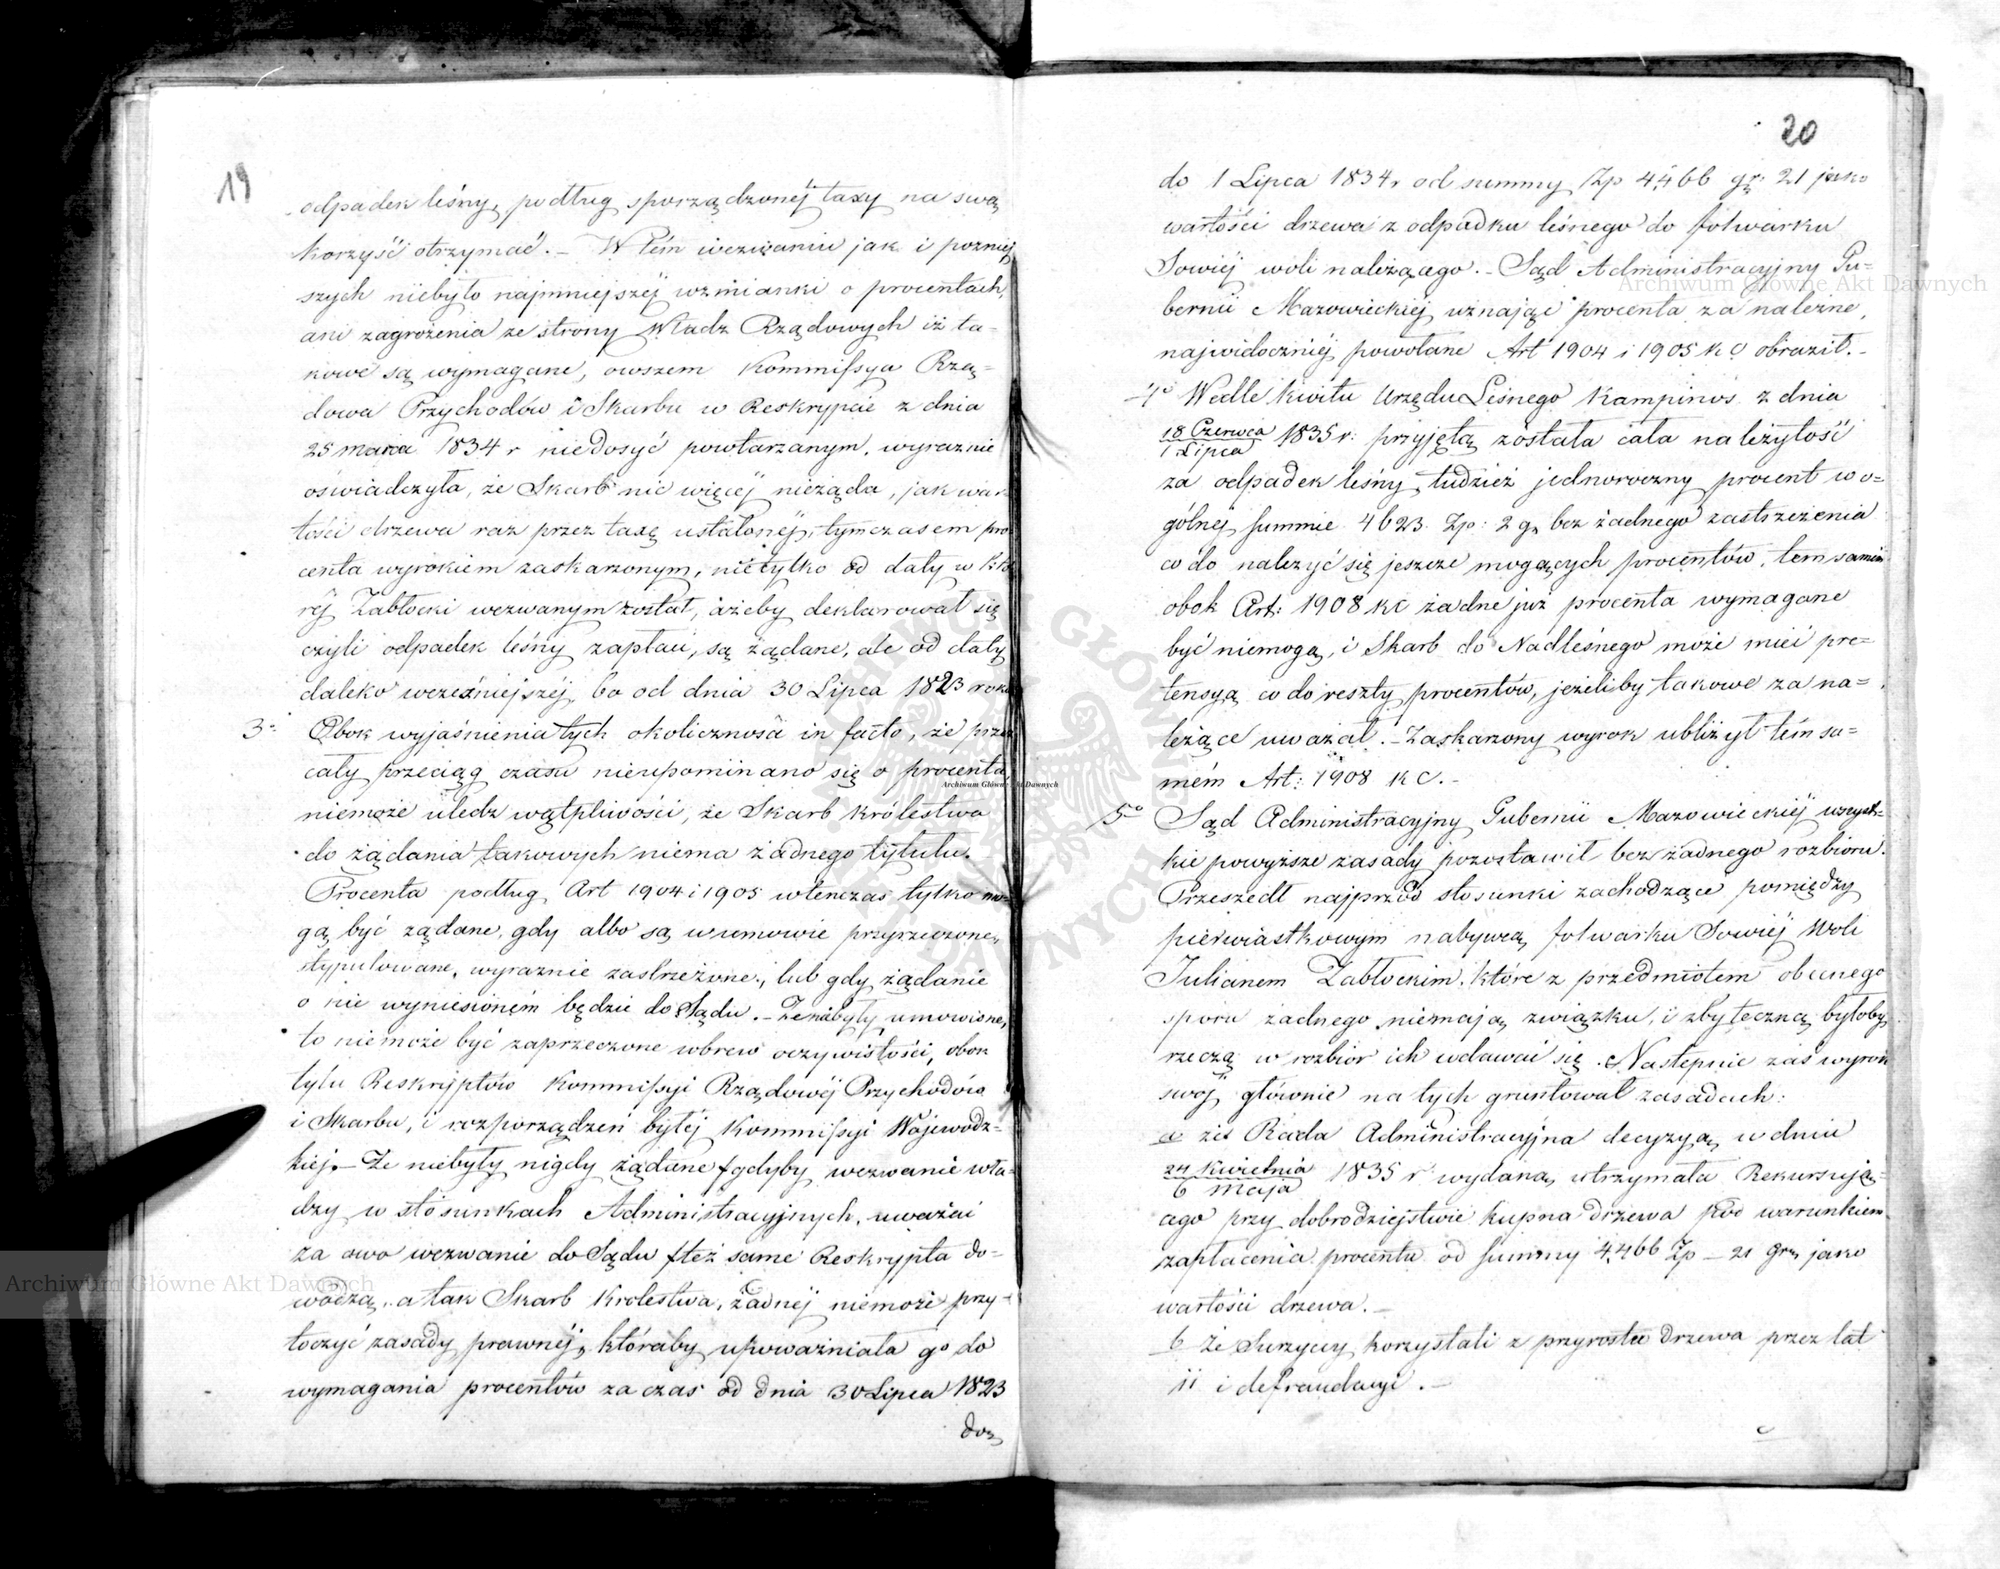 19
odpadek leśny, podług sporządzonéj taxy na swą
korzyść otrzymać. – W tém wezwaniu jak i pozniej
szych niebyło najmniejszéj wzmianki o procentach,
ani zagrożenia ze strony Władz Rządowych iż ta-
kowe są wymagane, owszem Kommissya Rzą-
dowa Przychodów i Skarbu w Reskrypcie z dnia
25 marca 1834 r niedosyć powtarzanym, wyraznie
oświadczyła, że Skarb nic więcéj nieżąda, jak war
tości drzewa raz przez taxę ustalonéj, tymczasem pro
centa wyrokiem zaskarzonym, nietylko od daty w któ
réj Zabłocki wezwanym został, ażeby deklarował się
czyli odpadek leśny zapłaci, są żądane, ale od daty
daleko wcześniejszéj, bo od dnia 30 Lipca 1823 roku
3° Obok wyjaśnienia tych okoliczności in facto, że przez
cały przeciąg czasu nieupominano się o procenta,
niemoże uledz wątpliwości, że Skarb Królestwa
do żądania takowych niema żadnego tytułu.
Procenta podług Art 1904 i 1905 wtenczas tylko mo-
gą być żądane, gdy albo są w umowie przyrzeczone,
stypulowane, wyraznie zastrzeżone, lub gdy żądanie
o nie wyniesioném będzie do Sądu. – Że niebyły umowione,
to niemoże być zaprzeczone wbrew oczywistości, obok
tylu Reskryptów Kommissyi Rządowéj Przychodów
i Skarbu, i rozporządzeń byłéj Kommissyi Wojewodz-
kiej – Że niebyły nigdy żądane /gdyby wezwanie wła-
dzy w stosunkach Administracyjnych, uważać
za owo wezwanie do Sądu/ też same Reskrypta do-
wodzą, a tak Skarb Królestwa, żadnéj niemoże przy-
toczyć zasady prawnéj, któraby upoważniała go do
wymagania procentów za czas od dnia 30 Lipca 1823
do
20
do 1 Lipca 1834 r od summy Zp 4466 gr: 21 jako
wartości drzewa z odpadku leśnego do folwarku
Sowiéj woli należącego. – Sąd Administracyjny Gu-
bernii Mazowieckiéj uznając procenta za należne,
najwidoczniéj powołane Art 1904 i 1905 K C obraził. –
4° Wedle Kwitu Urzędu Leśnego Kampinos z dnia
18 Czerwca / 1 Lipca 1835 r: przyjętą została cała należytość
za odpadek leśny, tudzież jednoroczny procent w o-
gólnéj summie 4623 Zp: 2 g. bez żadnego zastrzeżenia
co do należyć się jeszcze mogących procentów, tem samém
obok Art: 1908 KC żadne już procenta wymagane
być niemogą, i Skarb do Nadleśnego może mieć pre-
tensyą co do reszty procentów, jeżeliby takowe za na-
leżące uważał. – Zaskarzony wyrok ubliżył tém sa-
mém Art: 1908 K C. –
5° Sąd Administracyjny Gubernii Mazowieckiéj wszyst-
kie powyższe zasady pozostawił bez żadnego rozbioru.
Przeszedł najprzód stosunki zachodzące pomiędzy
pierwiastkowym nabywcą folwarku Sowiéj Woli
Julianem Zabłockim, które z przedmiotem obecnego
sporu żadnego niemają związku, i zbyteczną byłoby
rzeczą w rozbiór ich wdawać się. Następnie zaś wyrok
swój głównie na tych gruntował zasadach:
a że Rada Administracyjna decyzyą w dniu
24 Kwietnia / 6 Maja 1835 r. wydaną, utrzymała Rekursują-
cego przy dobrodziejstwie kupna drzewa pod warunkiem
zapłacenia procentu od summy 4466 Zp – 21 gr. jako
wartości drzewa. –
b że Skarzący korzystali z przyrostu drzewa przez lat
11 i defraudacyi. –